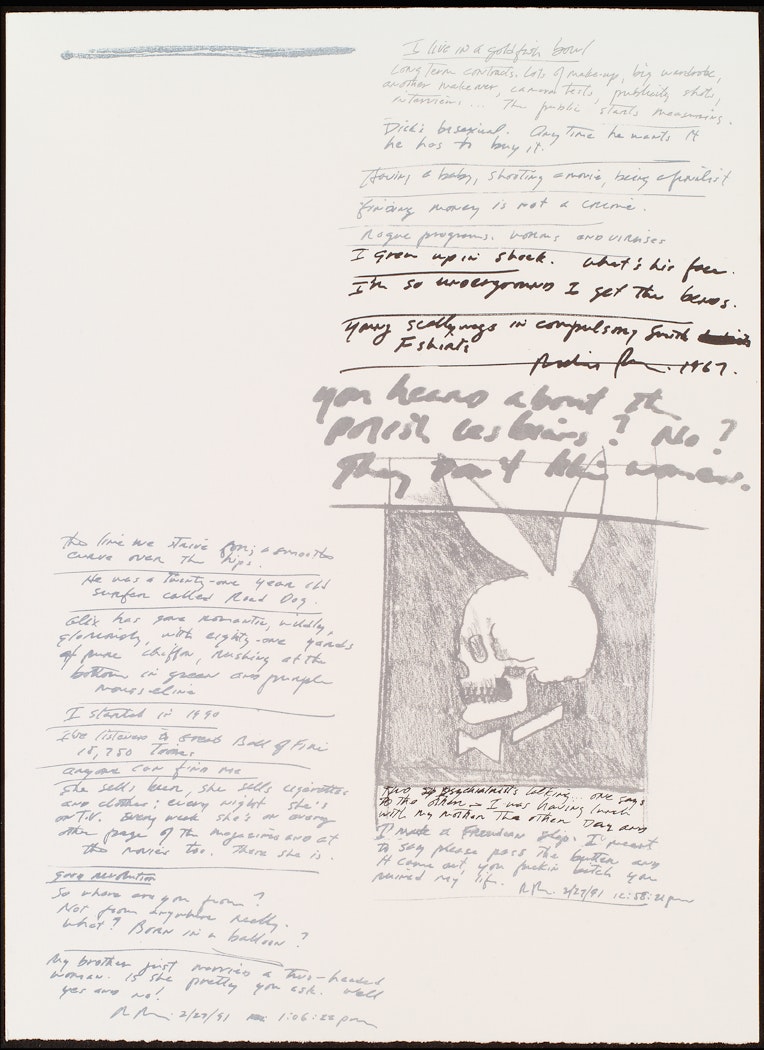 I live in a goldfish bowl
Long Term contracts. Lots of make-up, big wardrobe,
another makeover, camera tests, publicity shots,
interviews... The public starts measuring.
Dick's bisexual. Any Time he wants it
he has to buy it.
Having a baby, shooting a movie, being a finalist
finding money is not a crime.
Rogue programs. worms and viruises
I grew up in shock. What's his face.
I'm so underground I get the bends.
Young scallywags in compulsory Smith
T shirts
1967.
you heard about the
polish lesbians? No?
They Don't like women.
the line we strive for; a smooth
curve over the hips.
He was a Twenty-one year old
surfer called Road Dog.
Alix has gone romantic, wildly,
gloriously, with eighty-one yards
of pure chiffon, rushing at the
bottom in green and purple
mousseline
I started in 1990
I've listened to Great Ball of Fire
15,750 Times
anyone can find me
She sells beer, she sells cigarettes
and clothes; every night she's
on T.V. Every week she's on every
other page of the magazines and at
the movies too. There she is.
good revolution
So where are you from?
Not from anywhere really.
What? Born in a balloon?
My brother just married a two-headed
woman. Is she pretty you ask. Well
yes and no!
2/27/91 1:06:22pm
Two psychiatrists talking... one says
to the other - I was having lunch
with my mother the other Day and
I made a Freudian slip. I meant
to say please pass the butter and
it came out you fuckin bitch you
ruined my life.
2/27/91 12:58:21pm